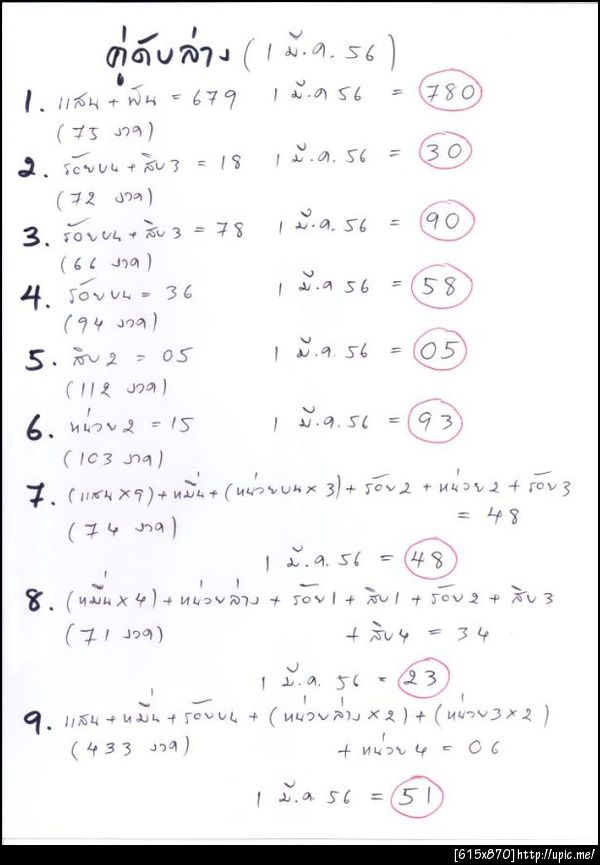 คู่ดับล่าง (1 มี.ค. 56)
1. แสน + พัน = 679 1 มี.ค 56 = 780
(75 งวด)
2. ร้อยบน + สิบ 3 = 18 1 มี.ค. 56 = 30
(72 งวด)
3. ร้อยบน + สิบ 3 = 78 1 มี.ค. 56 = 90
(66 งวด)
4. ร้อยบน = 36 1 มี.ค 56 = 58
(94 งวด)
5. สิบ 2 = 05 1 มี.ค. 56 = 05
(112 งวด)
6. หน่วย 2 = 15 1 มี.ค. 56 = 93
(103 งวด)
7. (แสน x 9) + หมื่น + (หน่วยบน x 3) + ร้อย 2 + หน่วย 2 + ร้อย 3
= 48
(74 งวด)
1 มี.ค. 56 = 48
8. (หมื่น x 4) + หน่วยล่าง + ร้อย 1 + สิบ 1 + ร้อย 2 + สิบ 3
(71 งวด) + สิบ 4 = 34
1 มี.ค. 56 = 23
9. แสน + หมื่น + ร้อยบน + (หน่วยล่าง x 2) + (หน่วย 3 x 2)
(433 งวด) + หน่วย 4 = 06
1 มี.ค. 56 = 51
[615x870]http://upic.me/